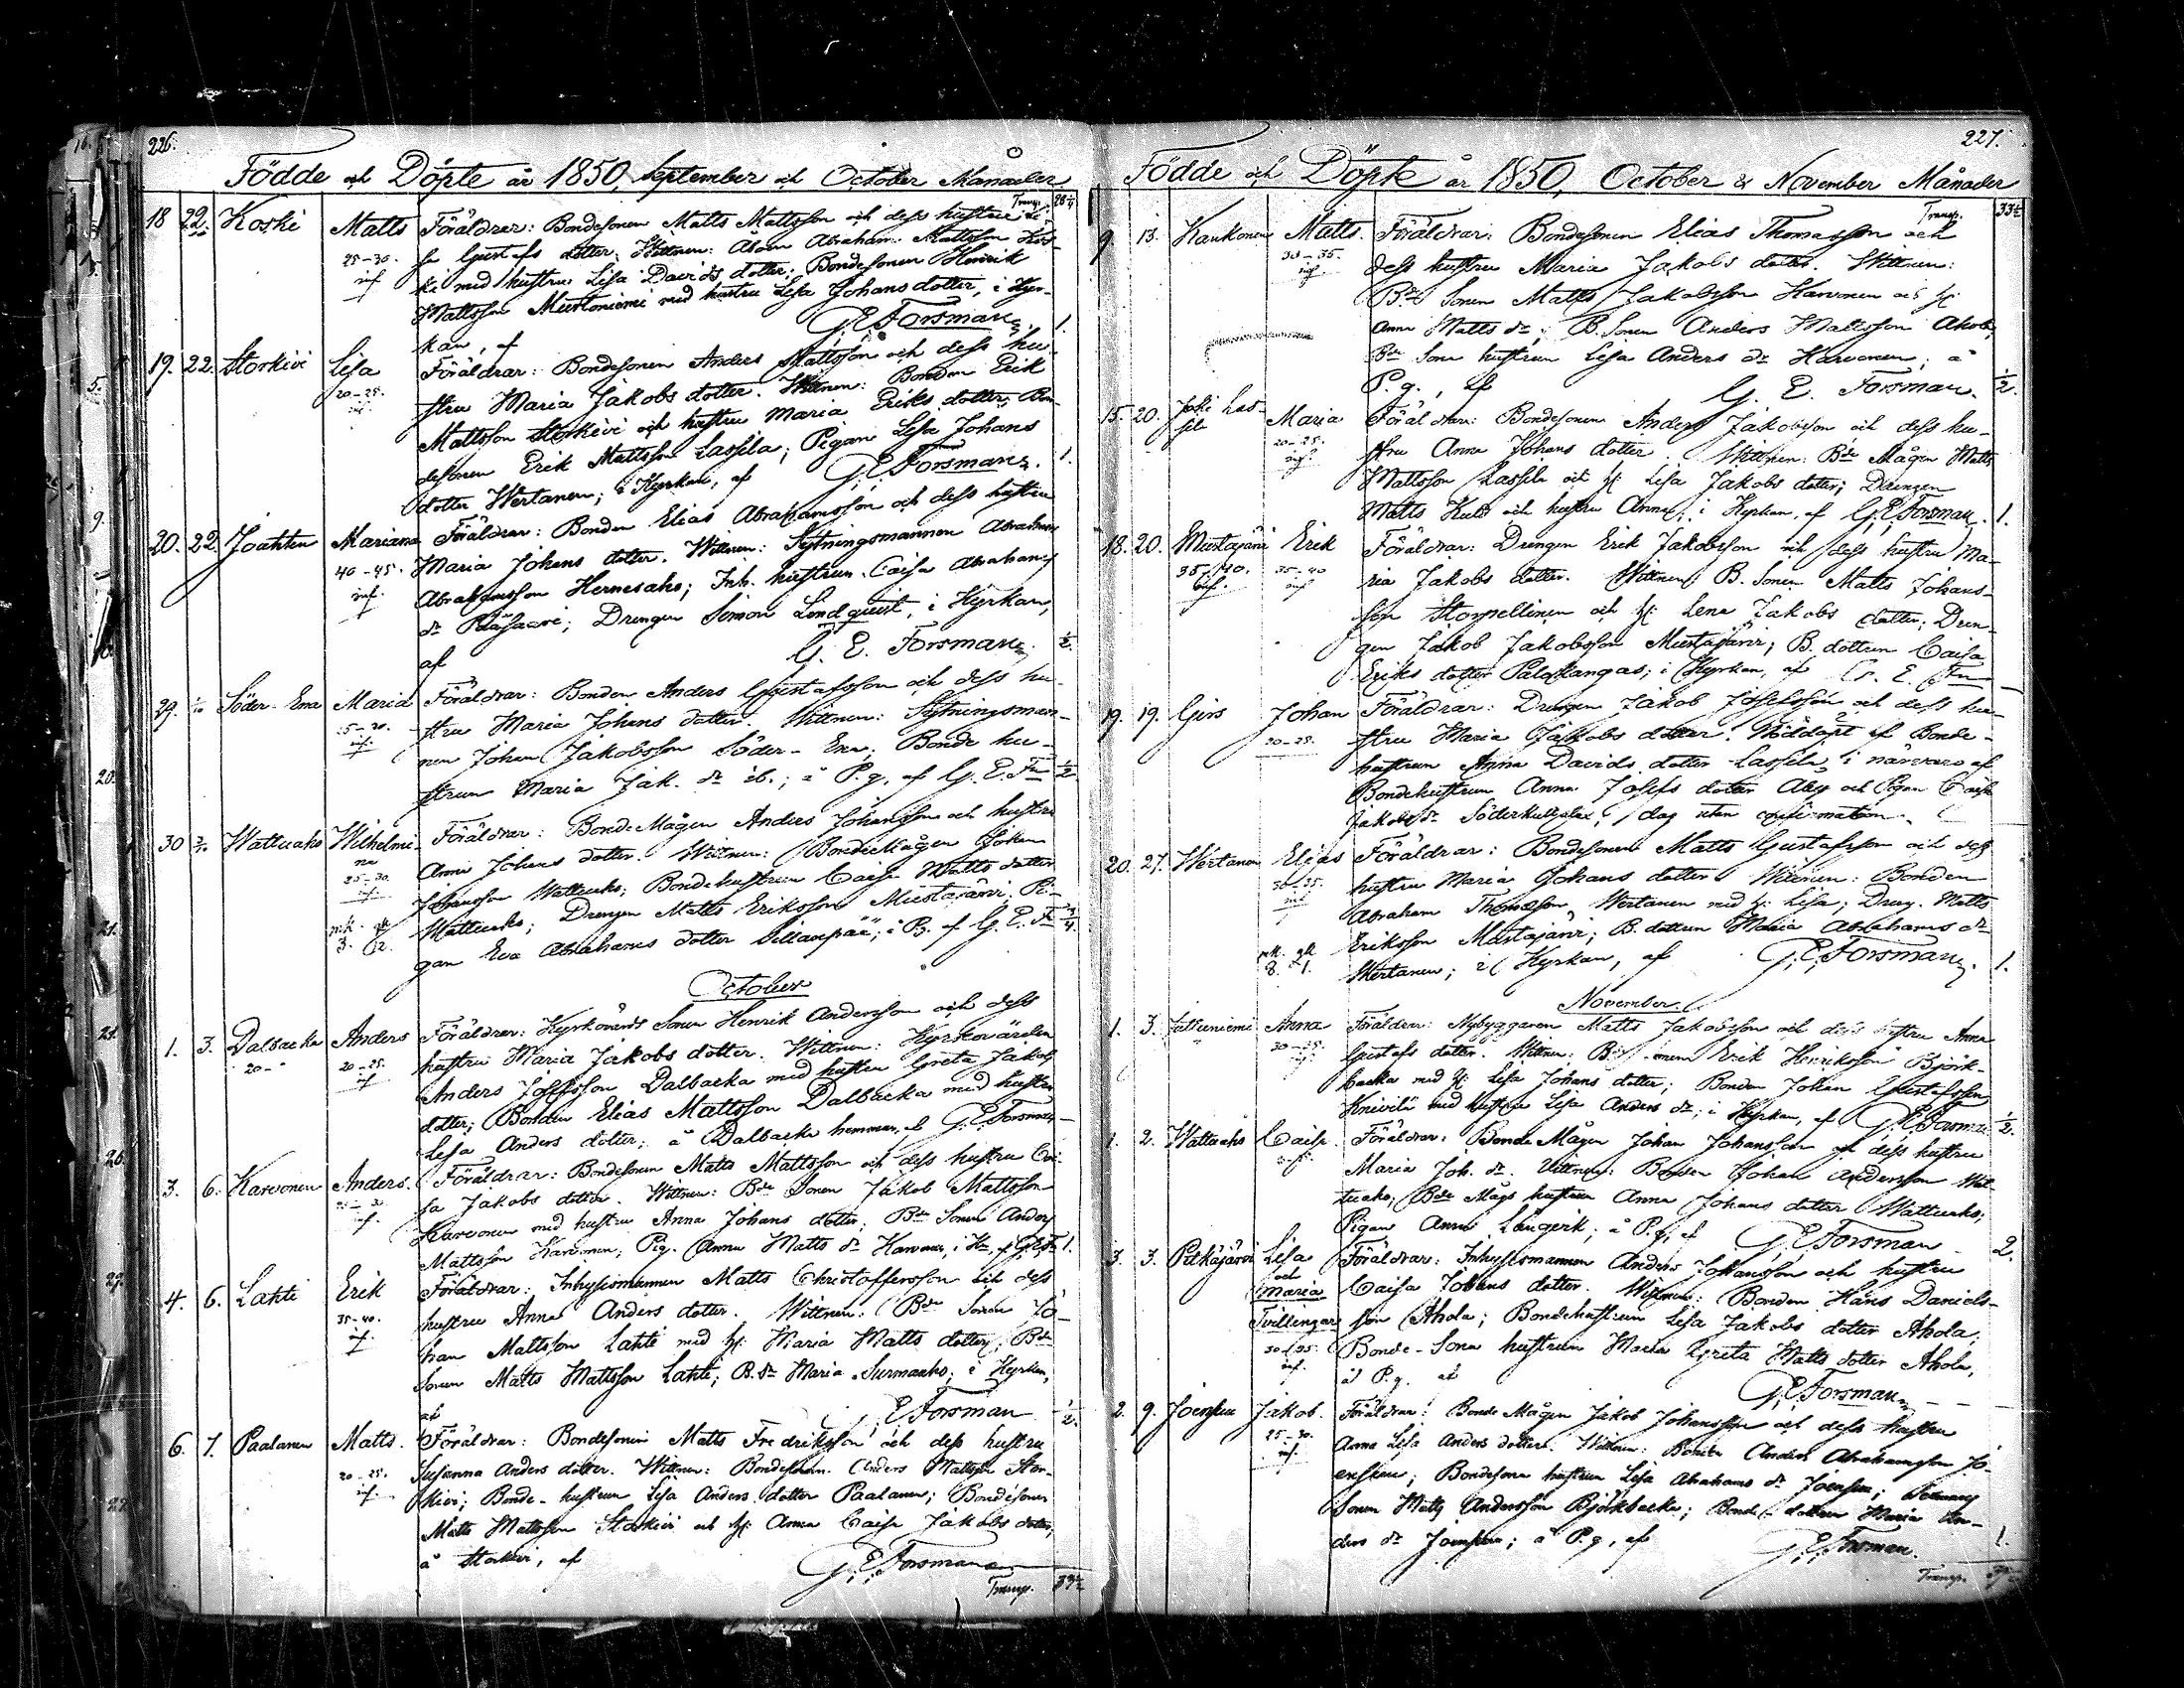 226.
Födde och Döpte år 1850, September och October Månader
Transp. 28 1/4
18 22. Koski Matts Föräldrar: Bondesonen Matts Mattsson och dess hustru Li-
25-30. sa Gustafs dotter; Wittnen: Åboen Abraham Mattsson Kos-
inf ki med hustru Lisa Davids dotter; Bondesonen Henrik
Mattsson Mustoniemi med hustru Lisa Johans dotter, i Kyr-
kan, af G. E. Forsman. 1.
19. 22. Storkivi Lisa Föräldrar: Bondesonen Anders Mattsson och dess hu-
20-25. stru Maria Jakobs dotter. Wittnen: Bonden Erik
inf. Mattsson Storkivi och hustru Maria Eriks dotter, Bon-
desonen Erik Mattsson Lassila; Pigan Lisa Johans
dotter Wertanen; i Kyrkan, af G. E. Forsman. 1.
20. 22. Joahten Mariana Föräldrar: Bonden Elias Abrahamsson och dess hustru
40-45. Maria Johans dotter. Wittnen: Sytningsmannen Abraham
inf. Abrahamsson Hernesaho; Inh. hustrun Caisa Abrahams
dr; Drengen Simon Lindquist, i Kyrkan,
af G. E. Forsman 1/2.
29. 1/10 Söder-Ena Maria Föräldrar: Bonden Anders Gustafsson och dess hu-
15-20. stru Maria Johans dotter. Wittnen: Sytningsman-
inf. nen Johan Jakobsson Söder-Ena; Bonde hu-
strun Maria Jak. dr ib.; å P.g. af G. E. Fn 1/2
30 Wattuaho Wilhelmi- Föräldrar: Bonde Mågen Anders Johansson och hustru
na Anna Johans dotter. Wittnen: Bonde Mågen Johan
25-30. Johansson Wattuaho; Bondehustrun Caisa Matts dotter
inf. Wattuaho; Drengen Matts Eriksson Mustajärvi; Pi-
gan Eva Abrahams dotter Sillanpää; i P.g. af G. E. Fn 3/4
October
1. 3. Dalbacka Anders Föräldrar: Kyrkovärds Sonen Henrik Andersson och dess
20-25. hustru Maria Jakobs dotter. Wittnen: Kyrkovärden
inf Anders Josefsson Dalbacka med hustru Greta Jakobs
dotter; Bonden Elias Mattsson Dalbacka med hustru
Lisa Anders dotter; å Dalbacka hemman, af G. E. Forsman
3. 6. Karvonen Anders. Föräldrar: Bondesonen Matts Mattsson och dess hustru Cai-
25-30 sa Jakobs dotter. Wittnen: Bde Sonen Jakob Mattsson
inf. Karvonen med hustru Anna Johans dotter; Bde Sonen Anders
Mattsson Karvonen; Pig. Anna Matts dr Karvonen, i Kn, af G. E. Fn 1.
4. 6. Lahti Erik Föräldrar: Inhysismannen Matts Christoffersson och dess
35-40. hustru Anna Anders dotter. Wittnen: Bde Sonen Jo-
inf. han Mattsson Lahti med H: Maria Matts dotter; Bde
Sonen Matts Mattsson Lahti; B. dr Maria Surmaaho; i Kyrkan,
af G. E. Forsman 1/2.
6. 7. Paalanen Matts. Föräldrar: Bondesonen Matts Fredriksson och dess hustru
20-25. Susanna Anders dotter. Wittnen: Bondesonen Anders Mattsson Stor-
inf. kivi; Bonde-hustrun Lisa Anders dotter Paalanen; Bondesonen
Matts Mattsson Storkivi och H: Anna Caisa Jakobs dotter;
å Storkivi, af G. E. Forsman
Transp. 33 1/2
227.
Födde och Döpte år 1850, October & November Månader
Transp. 33 1/2
9. 13. Kaukonen Matts. Föräldrar: Bondesonen Elias Thomasson och
30-35. dess hustru Maria Jakobs dotter. Wittnen:
inf Bde Sonen Matts Jakobsson Karvonen och H:
Anna Matts dr; B. Sonen Anders Mattsson Ahola;
Bde Sona hustrun Lisa Anders dr Karvonen; å
P.g., af G. E. Forsman. 1/2.
15. 20. Joki Las- Maria Föräldrar: Bondesonen Anders Jakobsson och dess hu-
sila 20-25. stru Anna Johans dotter. Wittnen: Bde Mågen Matts
inf. Mattsson Lassila och H: Lisa Jakobs dotter; Drengen
Matts och hustru Anna, i Kyrkan, af G. E. Forsman. 1.
18. 20. Mustajärvi Erik Föräldrar: Drengen Erik Jakobsson och dess hustru Ma-
35-40. 35-40 ria Jakobs dotter. Wittnen: B. Sonen Matts Johans-
inf. inf son Storpellinen och H: Lena Jakobs dotter; Dren-
gen Jakob Jakobsson Mustajärvi; B. dottren Caisa
Eriks dotter Palokangas; i Kyrkan, af G. E. Fn
19. 19. Girs Johan Föräldrar: Drengen Jakob Josefsson och dess hu-
20-25. stru Maria Jakobs dotter. Nöddöpt af Bonde-
hustrun Anna Davids dotter Lassila, i närvaro af
Bondehustrun Anna Josefs dotter och Pigan Caisa
Jakobs dr; dog utan confirmation.
20. 27. Wertanen Elias Föräldrar: Bondesonen Matts Gustafsson och dess
30-35. hustru Maria Johans dotter. Wittnen: Bonden
inf Abraham Thomasson Wertanen med H: Lisa; Dreng. Matts
Eriksson Mustajärvi; B. dottren Maria Abrahams dr
8. 1. Wertanen; i Kyrkan, af G. E. Forsman. 1.
November.
1. 3. Anna Föräldrar: Nybyggaren Matts Jakobsson och dess hustru Anna
30-35. Gustafs dotter. Wittnen: Erik Henriksson Björk-
inf. backa med H: Lisa Johans dotter; Bonden Johan Gustafsson
Knivilä med hustru Lisa Anders dr; i Kyrkan, af G. E. Forsman 1/2.
1. 2. Wattuaho Caisa. Föräldrar: Bonde Mågen Johan Johansson och dess hustru
Maria Joh. dr. Wittnen: Bonden Johan Andersson Wat-
tuaho; Bde Mågs hustrun Anna Johans dotter Wattuaho;
Pigan Anna Långerik; å P.g, af G. E. Forsman
3. 3. Pitkäjärvi Lisa Föräldrar: Inhysismannen Anders Johansson och hustru 2.
och Caisa Johans dotter. Wittnen: Bonden Hans Daniels-
Maria son Ahola; Bondehustrun Lisa Jakobs dotter Ahola;
Tvillingar Bonde-Sona hustrun Maria Greta Matts dotter Ahola,
30-35. å P.g. af G. E. Forsman
inf.
2. 9. Joensuu Jakob. Föräldrar: Bonde Mågen Jakob Johansson och dess hustru
25-30. Anna Lisa Anders dotter. Wittnen: Bonden Anders Abrahamsson Jo-
inf. ensuu; Bondesona hustrun Lisa Abrahams dr Joensuu;
Sonen Matts Andersson Björkbacka; Bonde-dottren Maria An-
ders dr Joensuu; å P.g, af G. E. Forsman. 1.
Transp.